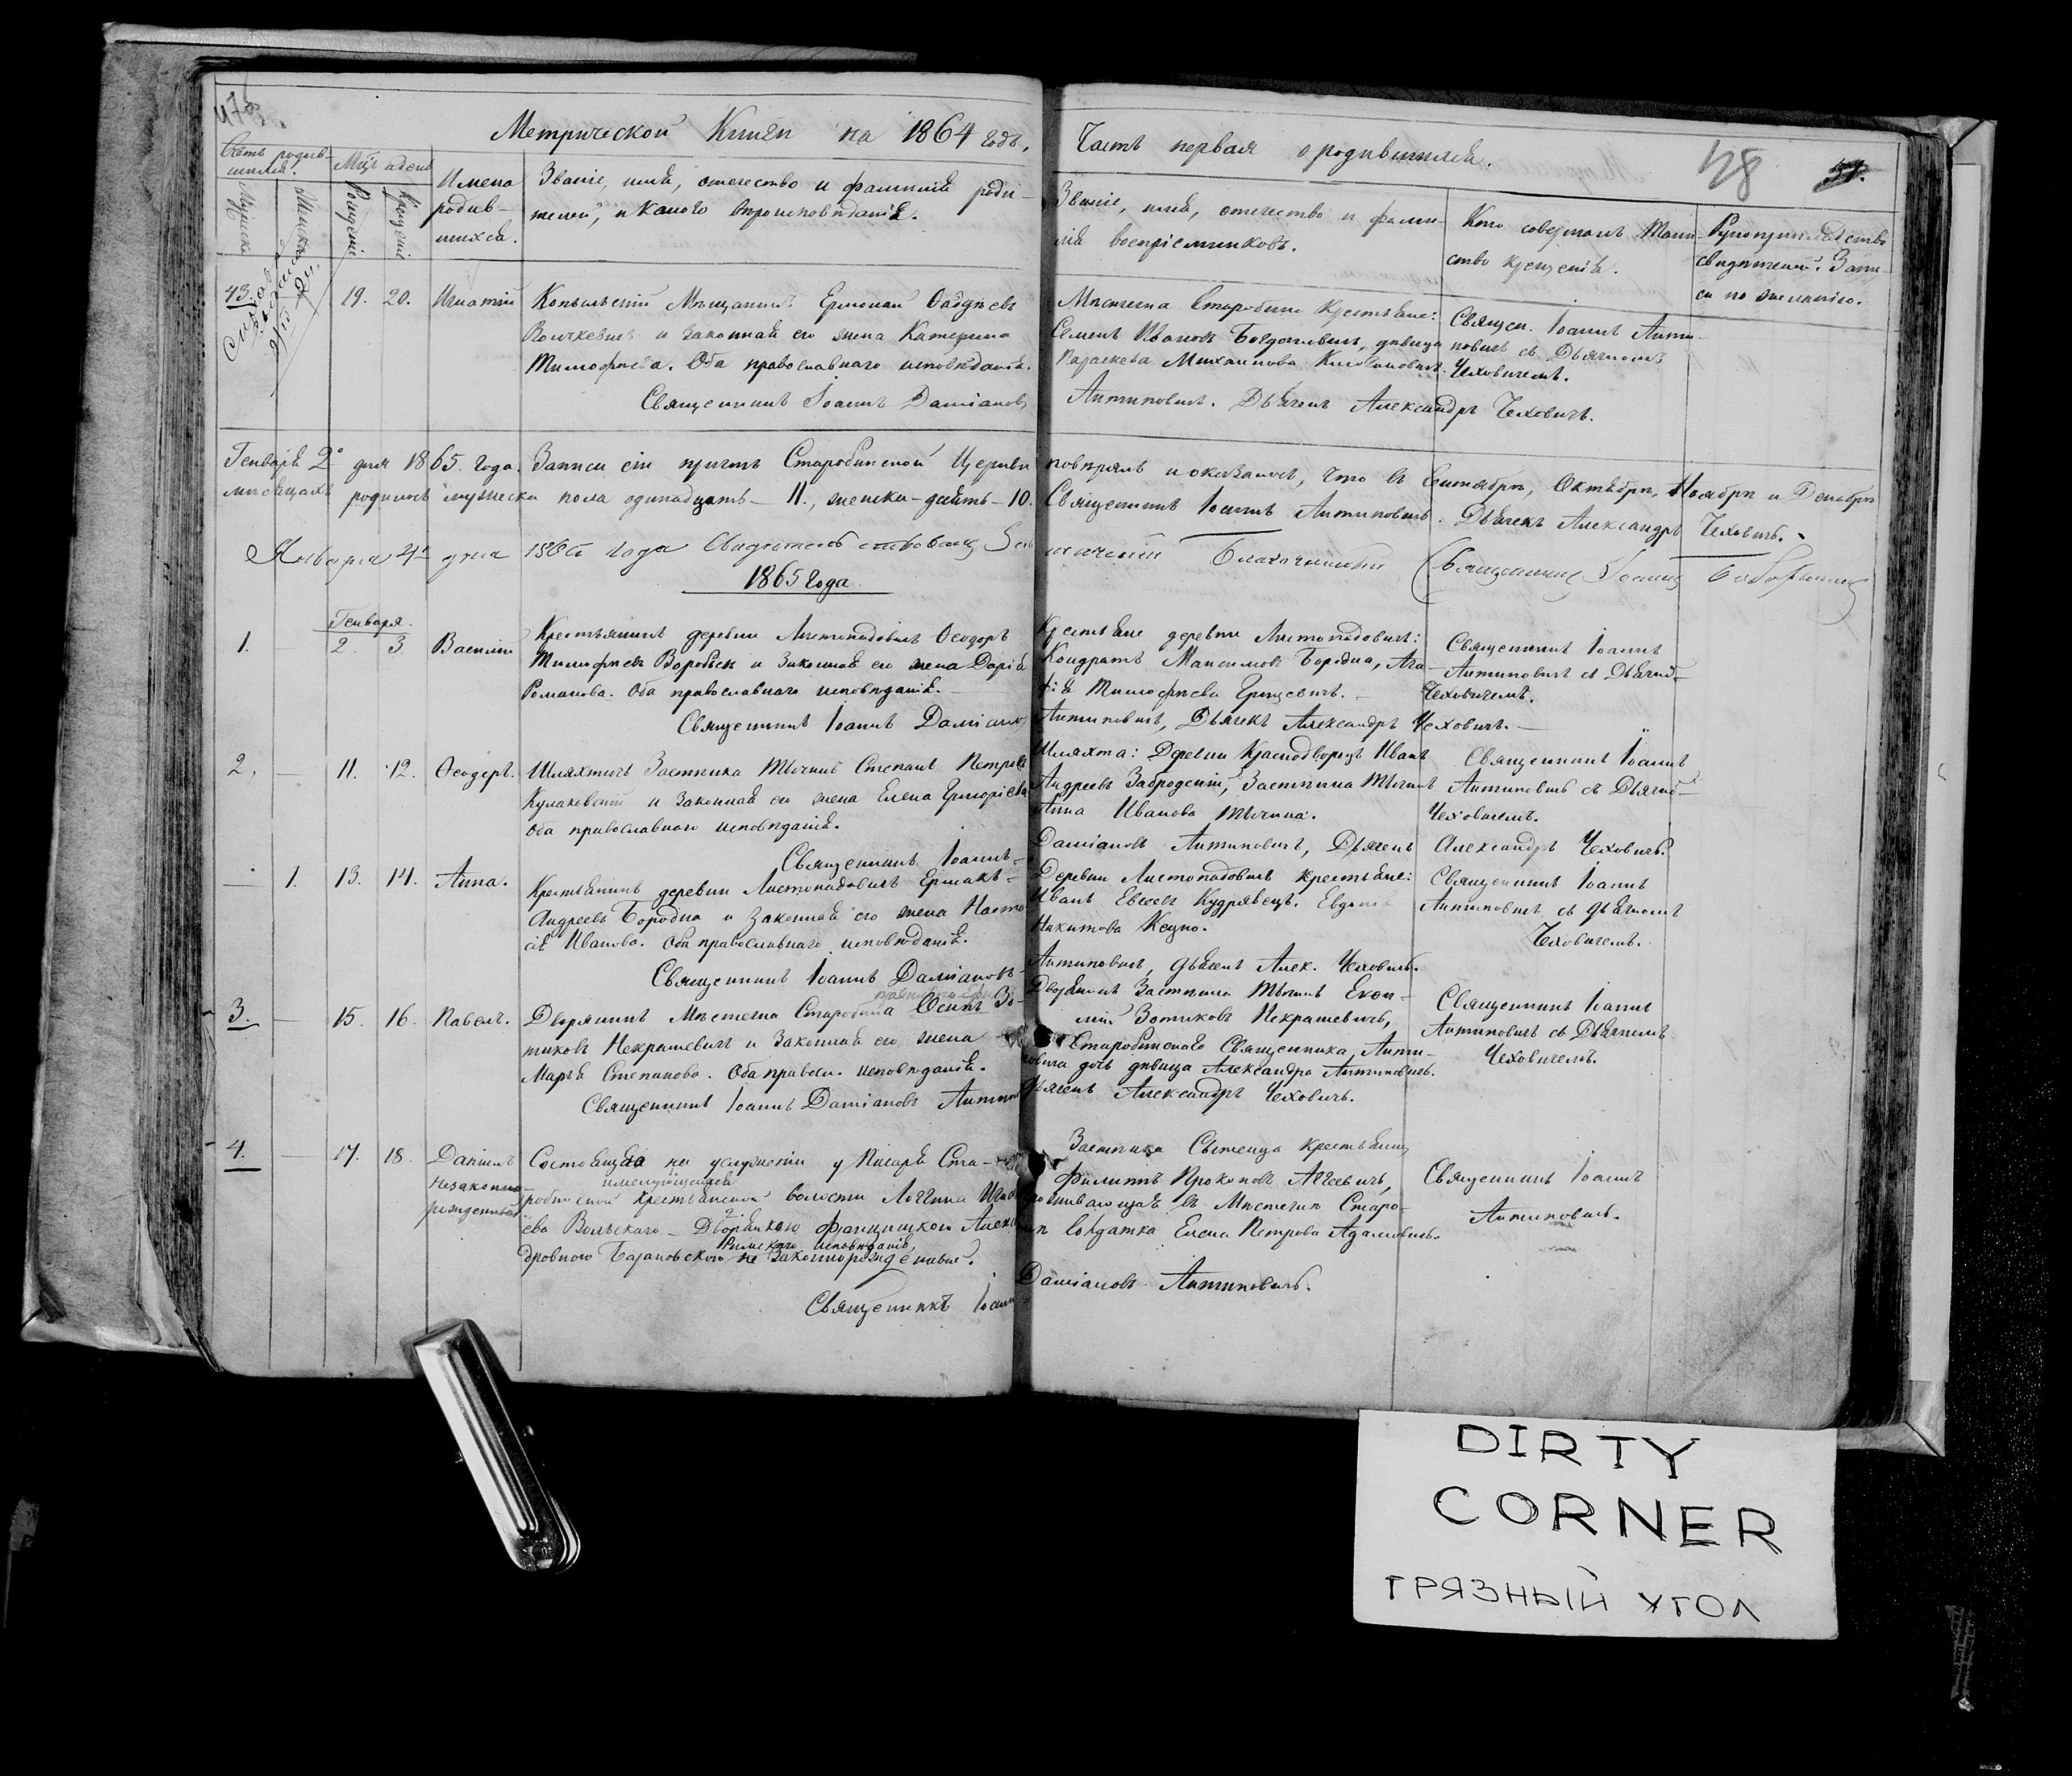 Метрической Книги на 1864 годъ,
Часть первая о родившихся.
48
Мѣс. и день
Имена родив-
шихся.
Званіе, имя, отечество и фамилія роди-
телей, и какого вѣроисповѣданія.
Званіе, имя, отечество и фами-
лія воспріемниковъ.
Кто совершалъ Таин-
ство крещенія.
Рукоприкладство
свидѣтелей записи
по желанію.
43.
19. 20. Игнатій
Копыльскій Мѣщанинъ
и законная его жена Катерина
Тимофеева. Оба православнаго исповѣданія.
Священникъ Іоаннъ Даміановъ
Мѣстечка Старобина Крестьяне:
Семенъ Ивановъ дѣвица
Параскева Михаилова
Антиповичъ. Дьячекъ Александръ Чеховичъ.
Священ. Іоаннъ Анти-
повичъ съ Дьячкомъ
Чеховичемъ.
Генваря 2о дня 1865. года. Записи сіи причтъ Старобинской Церкви повѣрялъ и оказалось, что въ Сентябрѣ, Октябрѣ, Ноябрѣ и Декабрѣ
мѣсяцахъ родилось мужеска пола одинадцать - 11., женска - десять - 10. Священникъ Іоаннъ Антиповичъ. Дьячекъ Александръ Чеховичъ.
Января 4го дня 1865 года Благочинный Священникъ Іоаннъ
1865 Года.
Генваря.
1. 2. 3. Василій
Крестьянинъ деревни Листопадовичъ Ѳеодоръ
Тимофеевъ Воробьек и законная его жена Дарія
Романова. Оба православнаго исповѣданія.
Священникъ Іоаннъ Даміановъ
Крестьяне деревни Листопадовичъ:
Кондратъ Максимовъ Бородка, Ага-
фія Тимофеева Грицевичъ.
Антиповичъ, Дьячекъ Александръ Чеховичъ.
Священникъ Іоаннъ
Антиповичъ съ Дьячко-
Чеховичемъ.
2. — 11. 12. Ѳеодоръ.
Шляхтичъ Застѣнка Тычинъ Степанъ Петровъ
Кулаковскій и законная его жена Елена Григоріева
Оба православнаго исповѣданія.
Священникъ Іоаннъ
Шляхта: Деревни Краснодворецъ Иванъ
Андреевъ Забродскій, Застѣнка Тычинъ
Анна Иванова Тычина.
Даміановъ Антиповичъ, Дьячекъ Александръ Чеховичъ.
Священникъ Іоаннъ
Антиповичъ съ Дьячко-
Чеховичемъ.
— 1. 13. 14. Анна.
Крестьянинъ деревни Листопадовичъ Ермакъ
Андреевъ Бородка и законная его жена Наста-
сія Иванова. Оба православнаго исповѣданія.
Священникъ Іоаннъ Даміановъ
Деревни Листопадовичъ крестьяне:
Иванъ Евсеевъ Кудрявецъ. Евдокія
Никитова
Антиповичъ, Дьячекъ Алек. Чеховичъ.
Священникъ Іоаннъ
Антиповичъ съ дьячкомъ
Чеховичемъ.
3. — 15. 16. Павелъ.
Дворянинъ Мѣстечка Старобина Осипъ Зо-
тиковъ Некрашевичъ и законная его жена
Марья Степанова. Оба правосл. исповѣданія.
Священникъ Іоаннъ Даміановъ Антипов
Дворянинъ Застѣнка Тычинъ
Зотиковъ Некрашевичъ,
Старобинскаго Священника Анти-
повича дочь дѣвица Александра Антиповичъ.
Дьячекъ Александръ Чеховичъ.
Священникъ Іоаннъ
Антиповичъ съ Дьячкомъ
Чеховичемъ.
4. — 17. 18. Даніилъ
незаконно-
рожденный
Состоящая на услуженіи у Писаря Ста-
робинской крестьянской волости Логгина
Вольскаго - Дворянкою Францишкою Алексан-
дровною Барановскою незаконнорожденный.
Римскаго исповѣданія,
Священникъ Іоаннъ
Застѣнка Сытеница крестьянинъ
Филиппъ Прокоповъ
проживающая въ Мѣстечкѣ Старо-
бинѣ Солдатка Елена Петрова Адамовичъ.
Даміановъ Антиповичъ.
Священникъ Іоаннъ
Антиповичъ.
DIRTY
CORNER
ГРЯЗНЫЙ УГОЛ